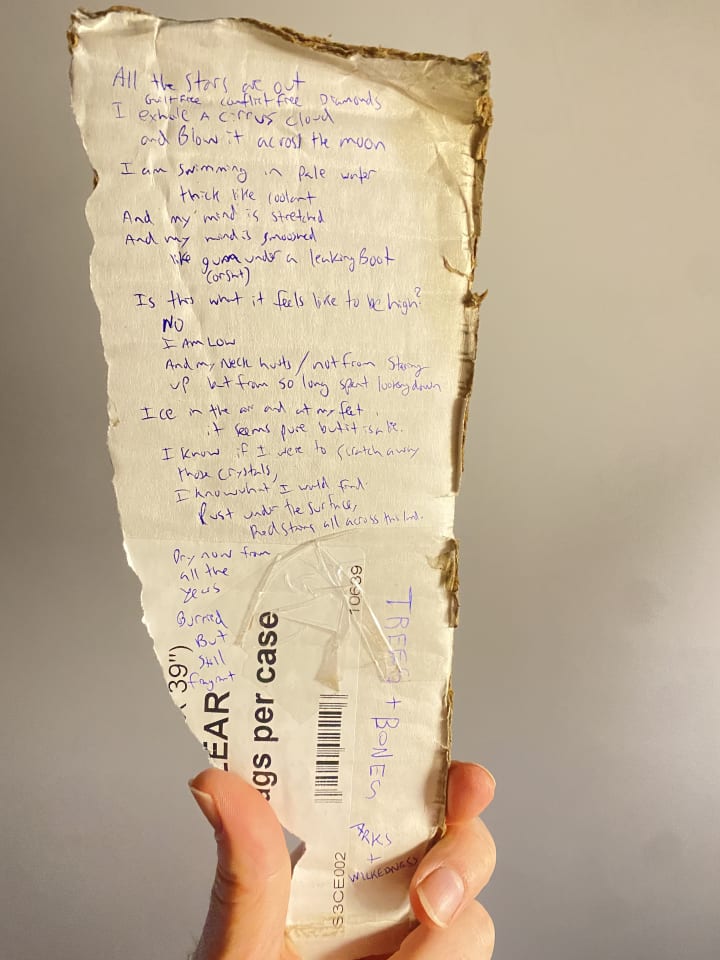 All the stars are out
Guilt free conflict free Diamonds
I exhale A cirrus cloud
and Blow it across the moon
I am swimming in Pale water
thick like coolant
And my mind is stretched
And my mind is smooshed
like gum under a leaking Boot
(or shit)
Is this what it feels like to be high?
NO
I AM LOW
And my Neck hurts / not from Staring
up but from so long spent looking down
Ice in the air and at my feet.
it seems pure but it is a lie.
I know if I were to scratch away
those crystals,
I know what I would find.
Rust under the surface,
Red stains all across this land.
Dry now from
all the
years
Burried
But
Still
fragrant
39")
EAR
ags per case
10639
S3CE002
TREES + BONES
ARKS
+
WILKEDNESS